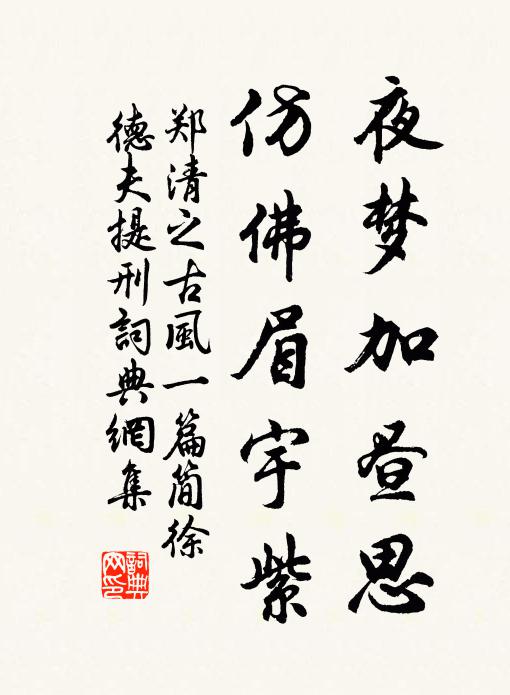 夜梦加昼思
仿佛眉宇紫
郑清之古風一篇简徐
德夫提刑詞典網集
詞典网印